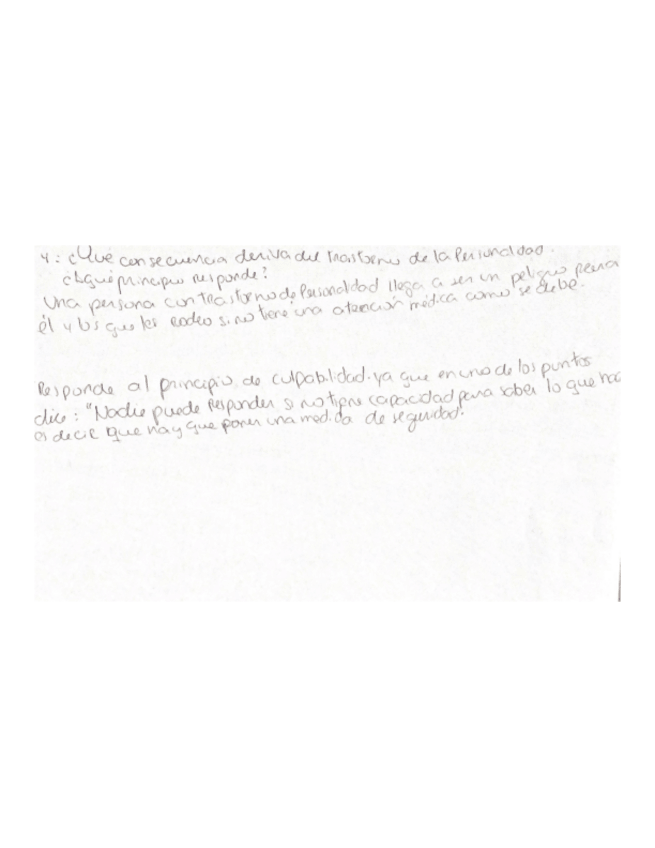 4: ¿Que consecuencia deriva del trastorno de la Personalidad.
¿A qué principio responde?
Una persona con trastorno de Personalidad llega a ser un peligro para
él y los que les rodeo si no tiene una atención médica como se debe.
Responde al principio de culpabilidad. ya que en uno de los puntos
dice: "Nadie puede Responder si no tiene capacidad para saber lo que hac
es decir que hay que poner una medida de seguridad".